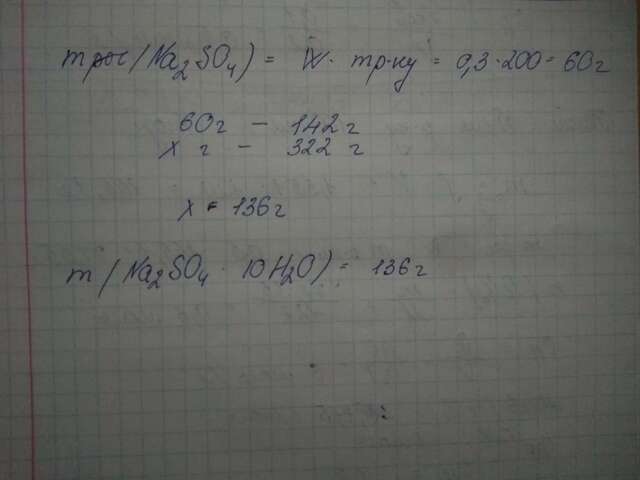 m рос (Na₂SO₄) = W · m р-ну = 0,3 · 200 = 60 г
60 г – 142 г
x г – 322 г
x = 136 г
m (Na₂SO₄ · 10H₂O) = 136 г